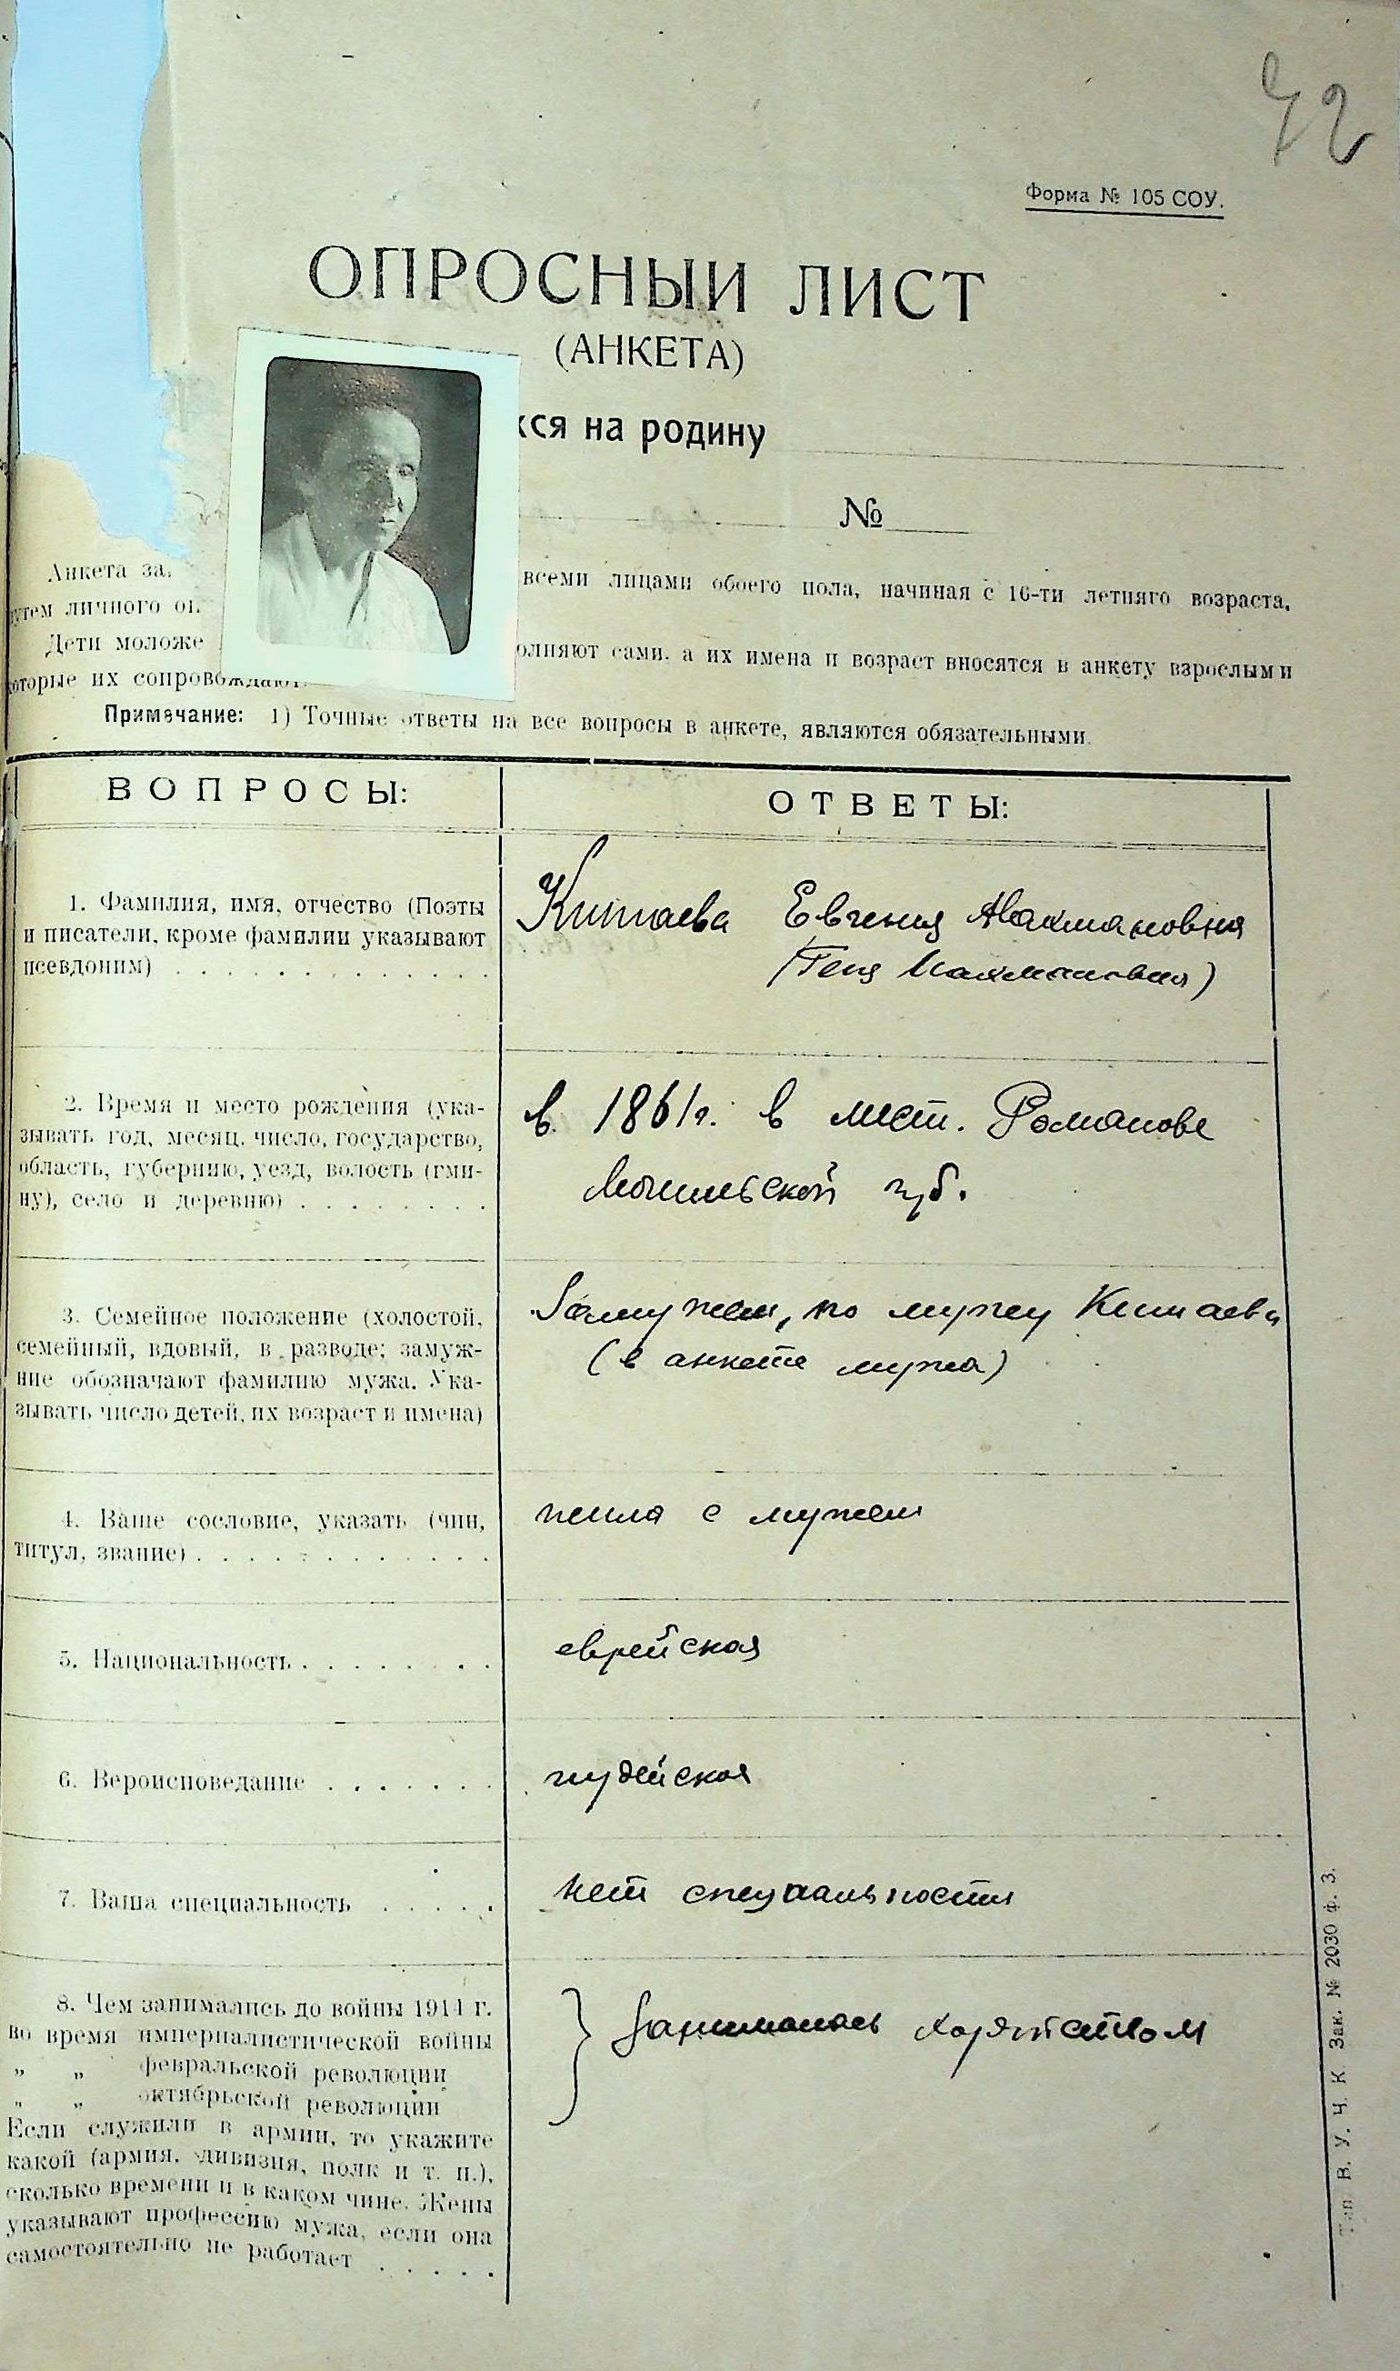 42
Форма № 105 СОУ.
ОПРОСНЫЙ ЛИСТ
(АНКЕТА)
хся на родину
№
Анкета за. всеми лицами обоего пола, начиная с 16-ти летняго возраста,
путем личного оп.
Дети моложе олняют сами. а их имена и возраст вносятся в анкету взрослыми
которые их сопровождают.
Примечание: 1) Точные ответы на все вопросы в анкете, являются обязательными.
ВОПРОСЫ:
ОТВЕТЫ:
1. Фамилия, имя, отчество (Поэты
и писатели, кроме фамилии указывают
псевдоним)
Китаева Евгения
2. Время и место рождения (ука-
зывать год, месяц, число, государство,
область, губернию, уезд, волость (гми-
ну), село и деревню)
в 1861г. в мест. Романове
Могильской губ.
3. Семейное положение (холостой,
семейный, вдовый, в разводе; замуж-
ние обозначают фамилию мужа. Ука-
зывать число детей, их возраст и имена)
Замужем, по мужу Китаева
(в анкете мужа)
4. Ваше сословие, указать (чин,
титул, звание)
жила с мужем
5. Национальность
еврейская
6. Вероисповедание
иудейская
7. Ваша специальность
нет специальности
8. Чем занимались до войны 1914 г.
во время империалистической войны
„ „ февральской революции
„ „ октябрьской революции
Если служили в армии, то укажите
какой (армия, дивизия, полк и т. п.),
сколько времени и в каком чине. Жены
указывают профессию мужа, если она
самостоятельно не работает
Занималась хозяйством
Тип. В. У. Ч. К. Зак. № 2030 ф. 3.